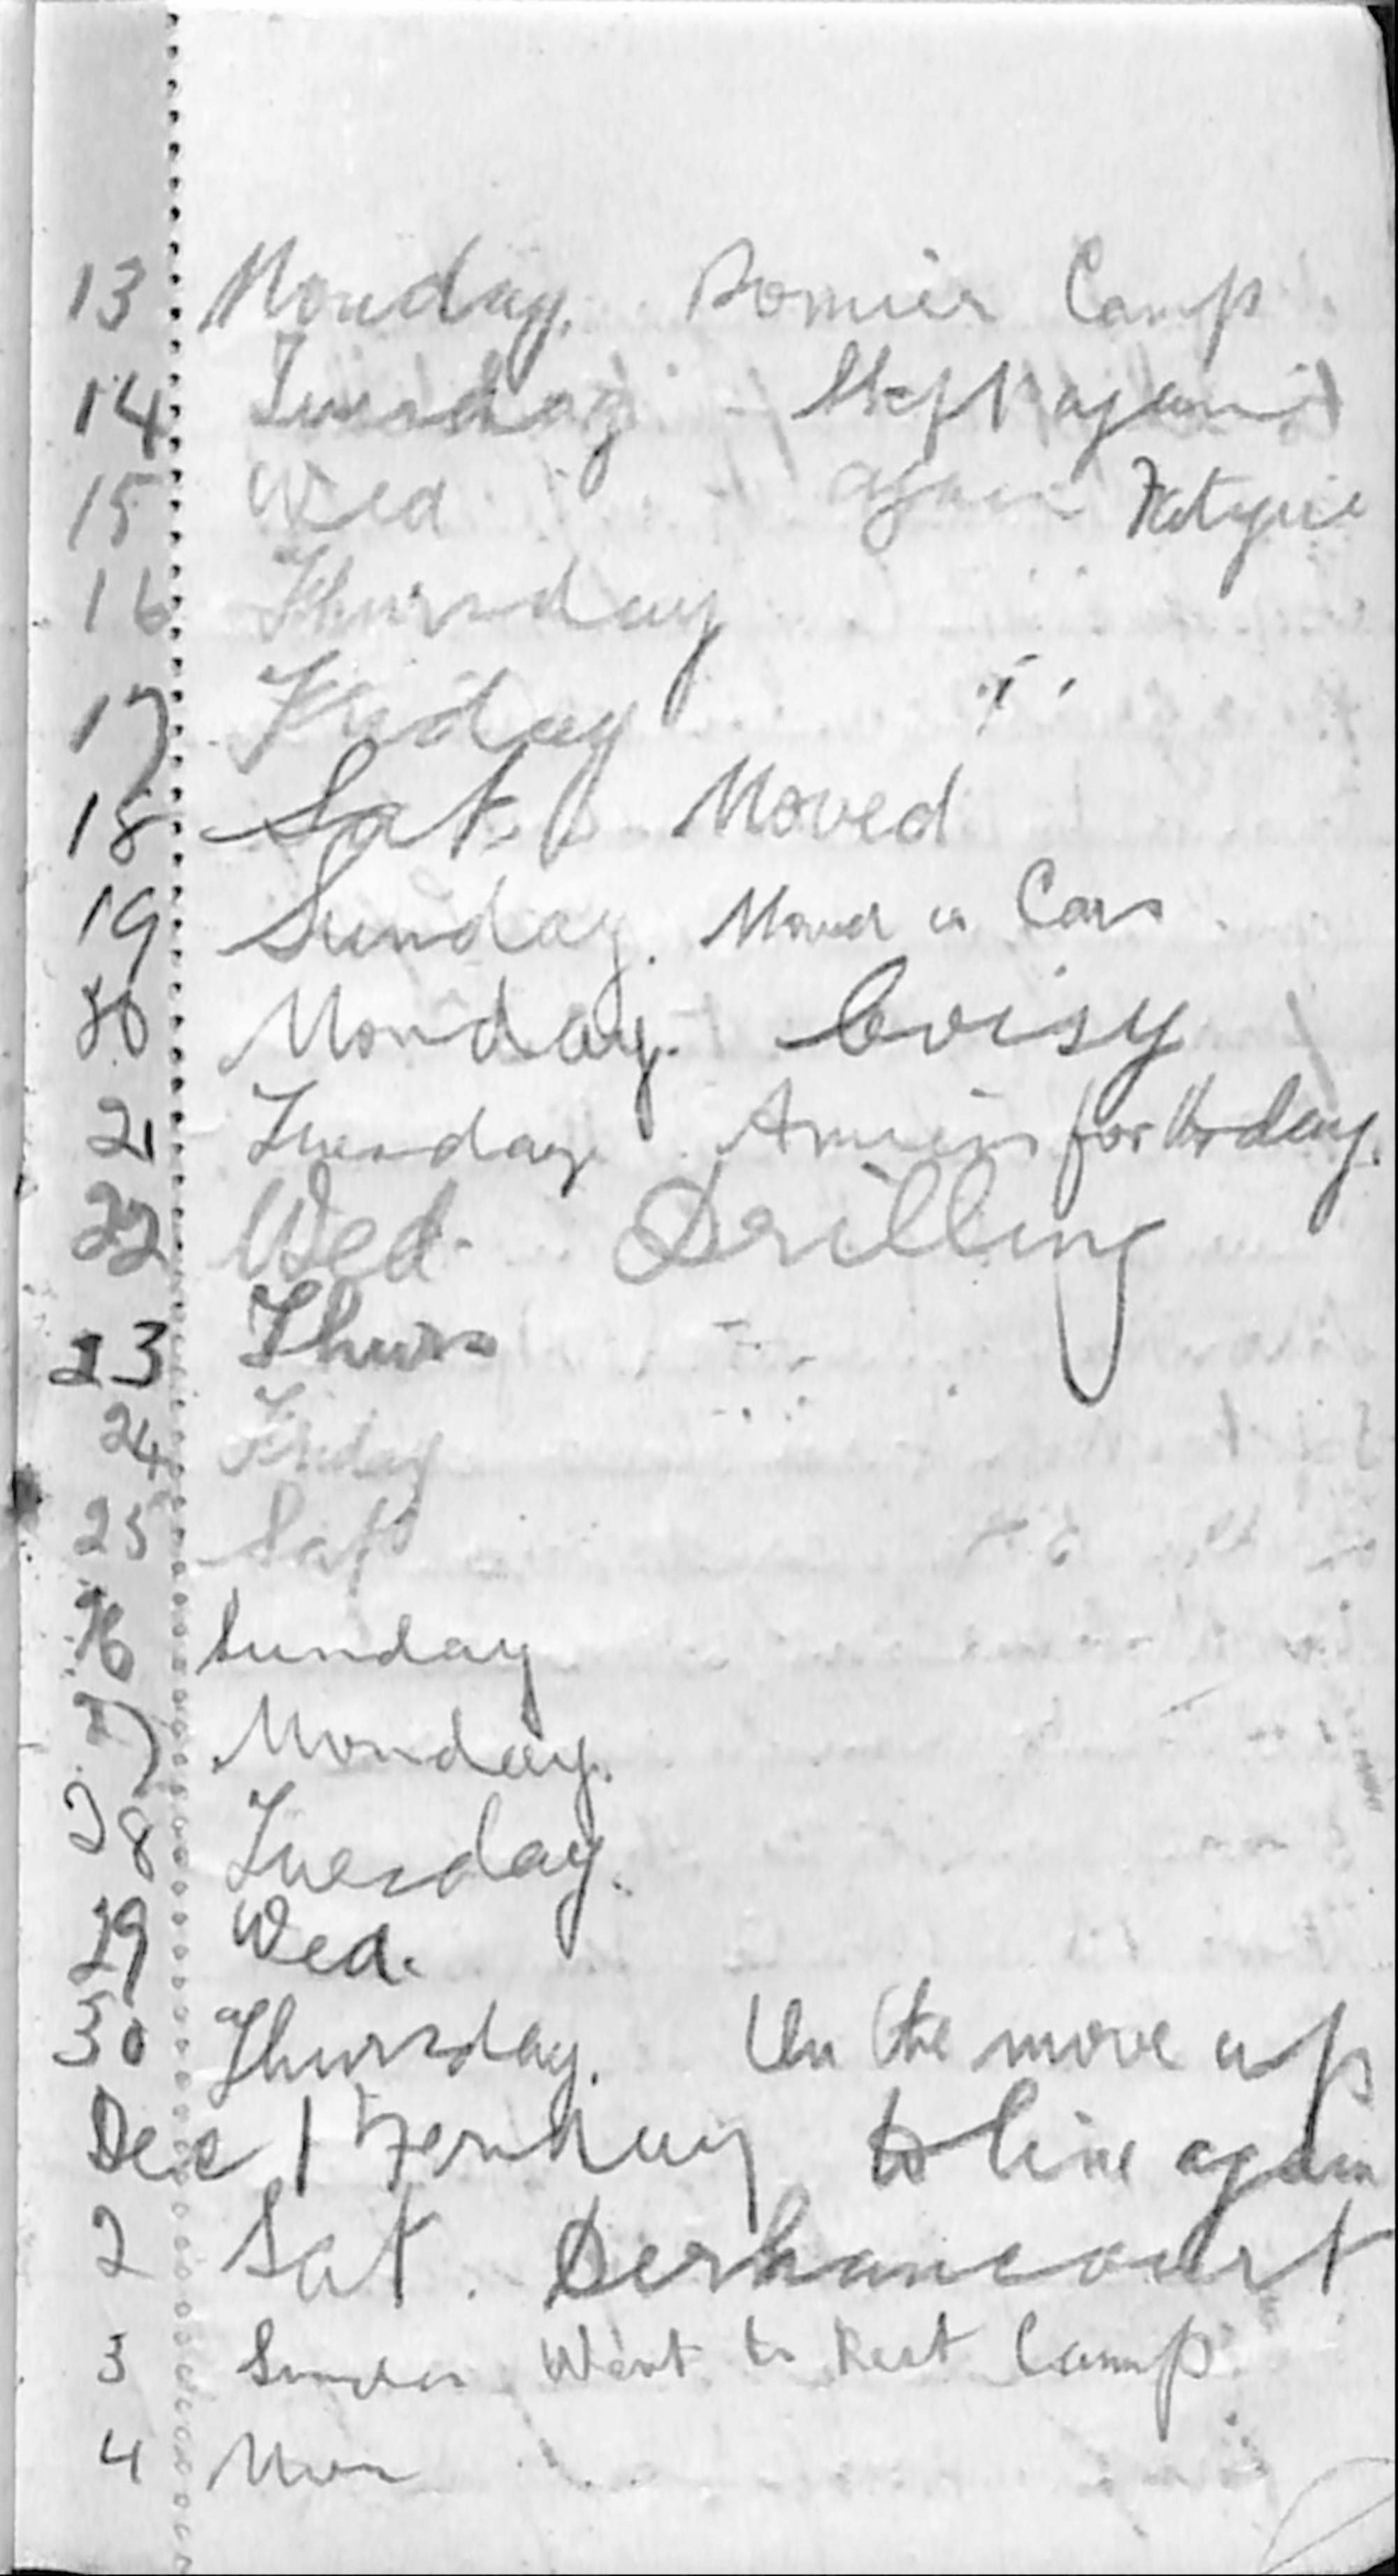 13 Monday. Pomier Camp
14 Tuesday - Slept again
15 Wed again Fatigue
16 Thursday
17 Friday
18 Sat. Moved
19 Sunday. Moved in Cars
20 Monday. Coisy
21 Tuesday Amiens for the day.
22 Wed. Drilling
23 Thurs
24 Friday
25 Sat
26 Sunday
27 Monday.
28 Tuesday.
29 Wed.
30 Thursday. On the move up
Dec 1 to line again
2 Sat. Dernancourt
3 Went to Rest Camp
4 Mon